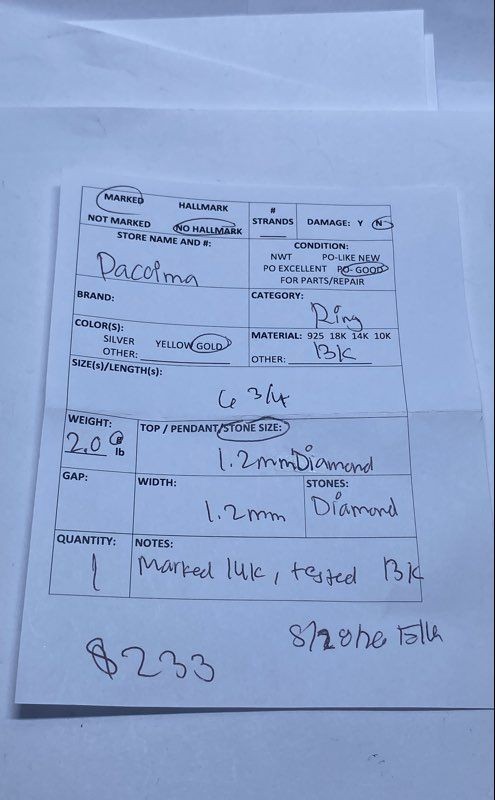 MARKED HALLMARK
NOT MARKED NO HALLMARK
# STRANDS
DAMAGE: Y N
STORE NAME AND #:
Pacoima
CONDITION:
NWT PO-LIKE NEW
PO EXCELLENT PO-GOOD
FOR PARTS/REPAIR
BRAND:
CATEGORY:
Ring
COLOR(S):
SILVER YELLOW GOLD
OTHER:
MATERIAL: 925 18K 14K 10K
OTHER: 13K
SIZE(s)/LENGTH(s):
6 3/4
WEIGHT:
2.0 g
lb
TOP / PENDANT/STONE SIZE:
1.2mm Diamond
GAP:
WIDTH:
1.2mm
STONES:
Diamond
QUANTITY:
1
NOTES:
Marked 14K, tested 13K
$233